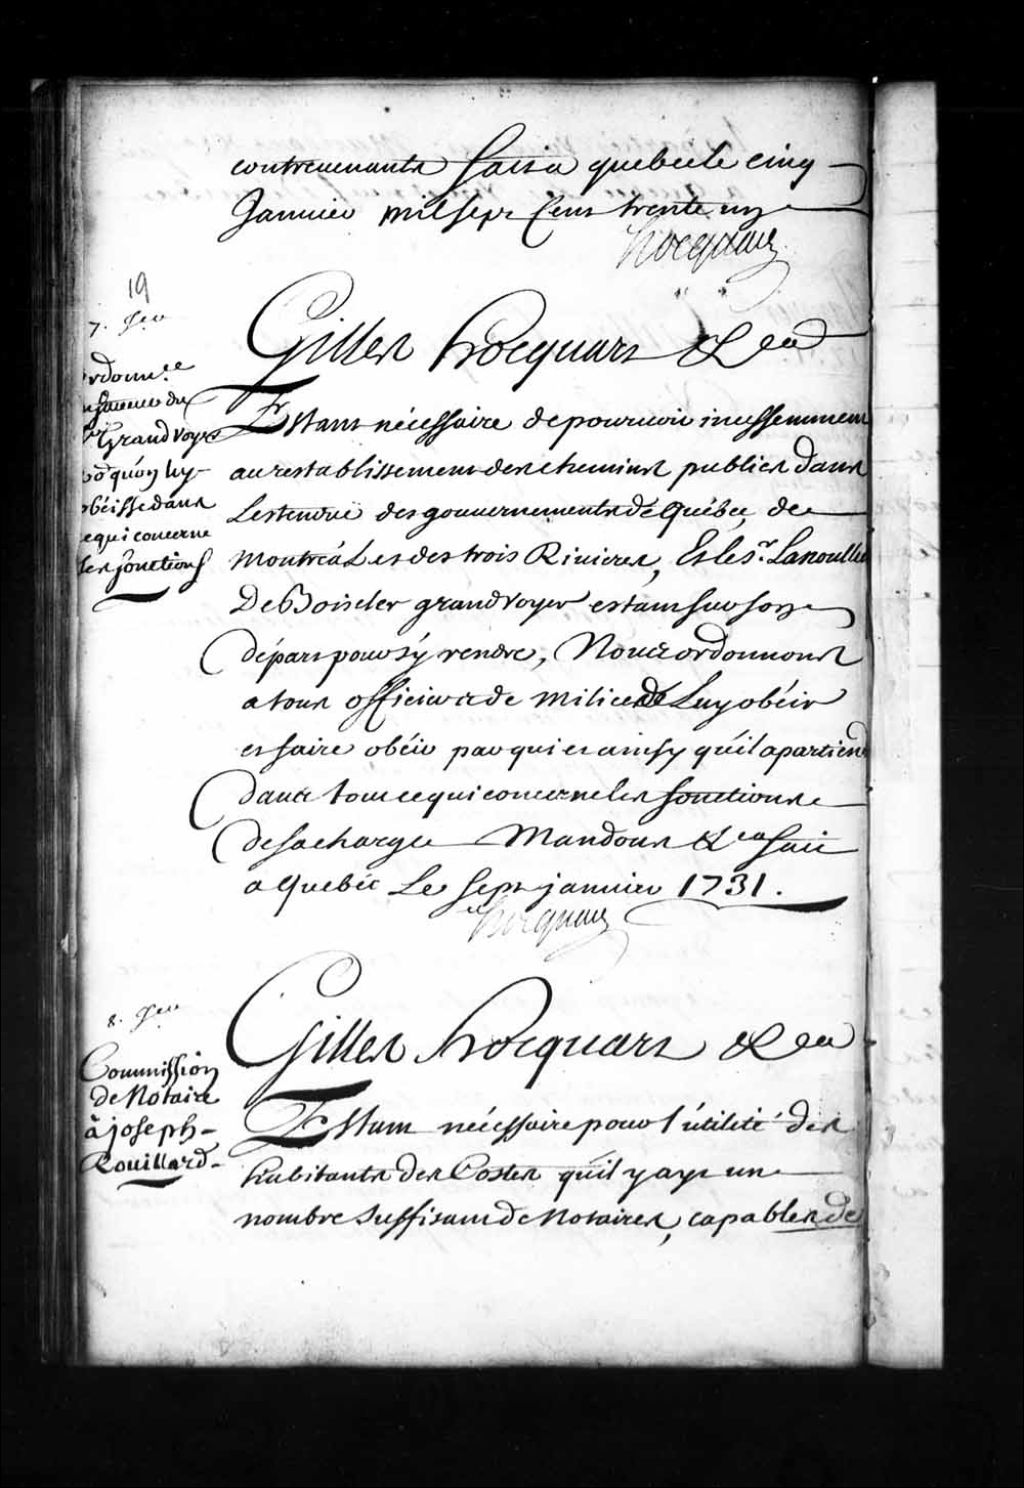 contrevenants fait a quebec le cinq
Janvier mil sept Cent trente un
hocquart
19
7. Jer
ordonn.ce
du
Sr Grand Voyer
qu'on luy
obéisse dans
ce qui concerne
les fonctions
Gilles hocquart & ca
Estant nécessaire de pourvoir incessemment
au restablissement des chemins publics dans
L'estendüe des gouvernements de Québec, de
Montréal et des trois Rivieres, Et le Sr. Lanoullier
De Boisclerc grand Voyer estant sur son
départ pour s'y rendre, Nous ordonnons
a tous officiers de milice de Luy obéir
et faire obéir par qui et ainsy qu'il apartiend
dans tout ce qui concerne les fonctions
de sa charge Mandons & ca fait
a Quebec Le Sept janvier 1731.
hocquart
8. Jer
Commission
de Notaire
à joseph
Rouillard
Gilles hocquart & ca
Estant nécessaire pour l'utilité des
habitants des Costes qu'il y ayt un
nombre suffisant de Notaires, capables de